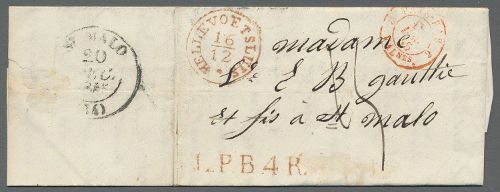 ST MALO
20
DEC.
(34)
HELLEVOETSLUIS
16/12
madame
Ve E B gaultie
et fis à St malo
L.P.B.4.R.